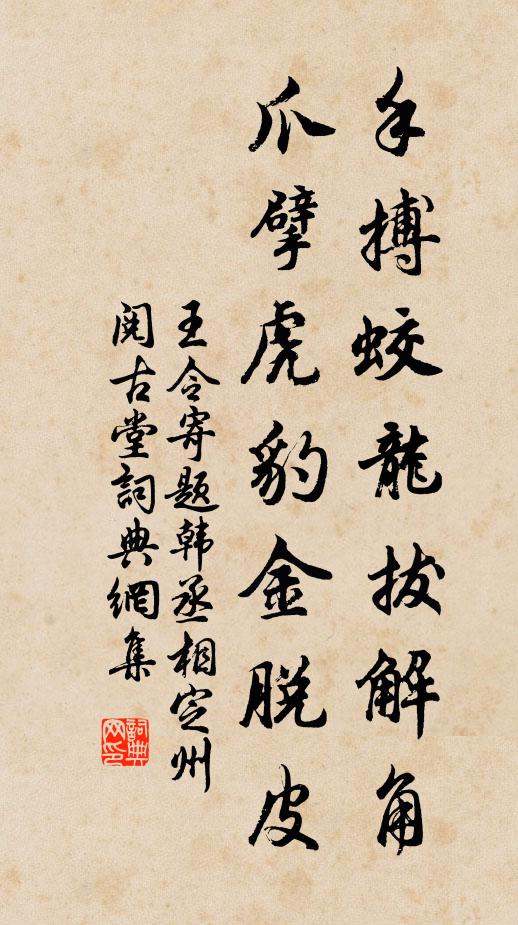 手搏蛟龍拔解角
爪擘虎豹金脫皮
王令寄题韩丞相定州
阅古堂詞典網集
詞典网印